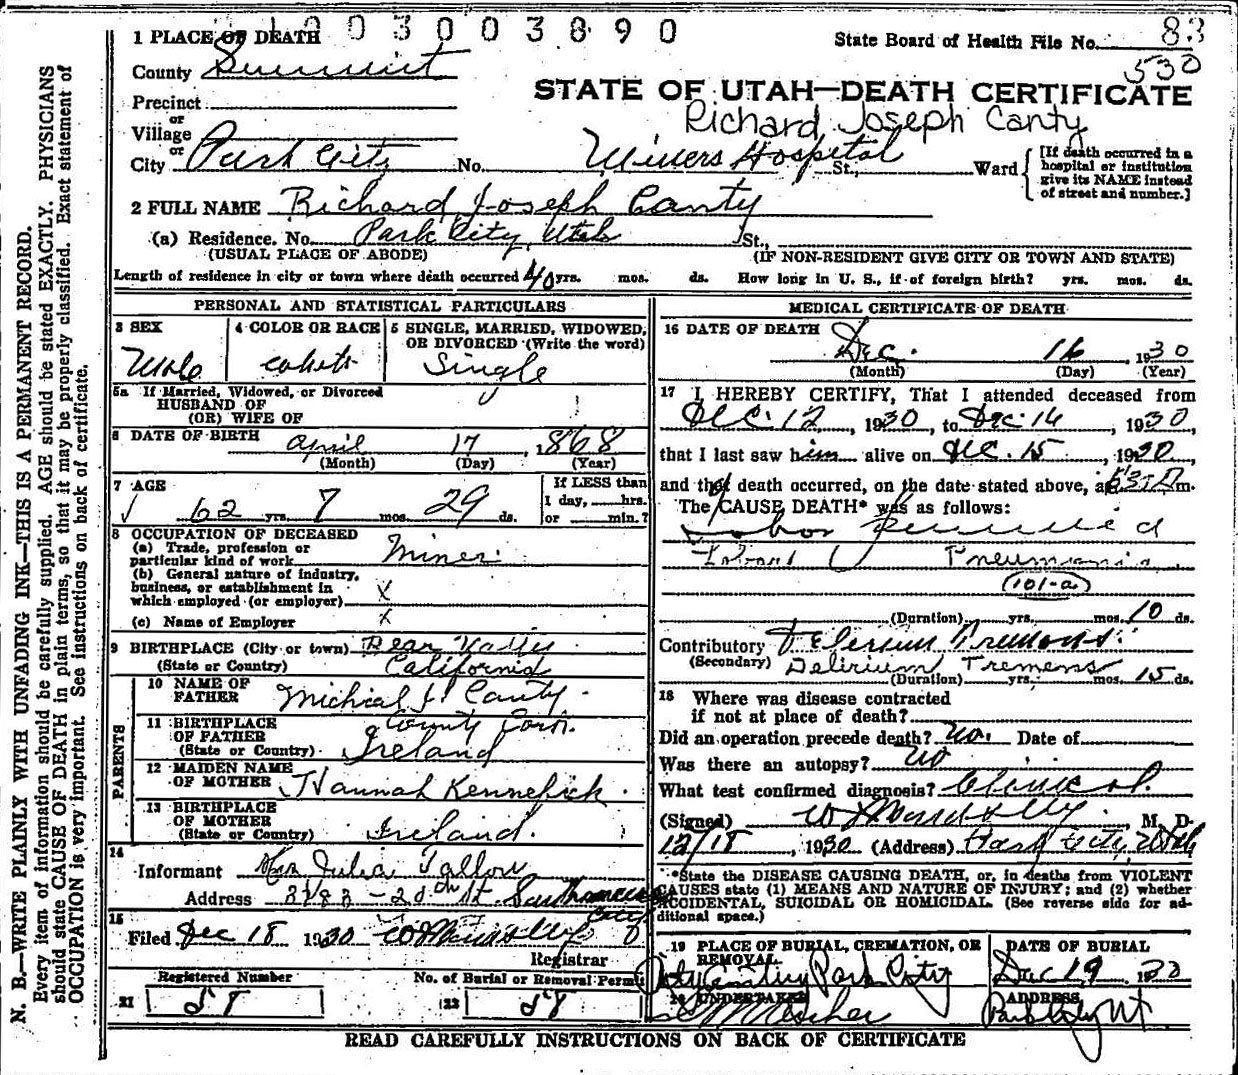 1003003890
1 PLACE OF DEATH
State Board of Health File No. 83
530
County Summit
STATE OF UTAH—DEATH CERTIFICATE
Precinct
or
Village
Richard Joseph Canty
or
City Park City No. Miners Hospital St., Ward
[If death occurred in a
hospital or institution
give its NAME instead
of street and number.]
2 FULL NAME Richard Joseph Canty
(a) Residence. No. Park City, Utah St.,
(USUAL PLACE OF ABODE) (IF NON-RESIDENT GIVE CITY OR TOWN AND STATE)
Length of residence in city or town where death occurred 40 yrs. mos. ds. How long in U. S., if of foreign birth? yrs. mos. ds.
PERSONAL AND STATISTICAL PARTICULARS
3 SEX
Male
4 COLOR OR RACE
white
5 SINGLE, MARRIED, WIDOWED,
OR DIVORCED (Write the word)
Single
5a If Married, Widowed, or Divorced
HUSBAND OF
(OR) WIFE OF
6 DATE OF BIRTH April 17, 1868
(Month) (Day) (Year)
7 AGE
62 yrs. 7 mos. 29 ds.
If LESS than
1 day, hrs.
or min.?
8 OCCUPATION OF DECEASED
(a) Trade, profession or
particular kind of work Miner
(b) General nature of industry,
business, or establishment in
which employed (or employer) X
(c) Name of Employer X
9 BIRTHPLACE (City or town) Bear Vally
(State or Country) California
PARENTS
10 NAME OF
FATHER Michial J. Canty
11 BIRTHPLACE
OF FATHER County Cork.
(State or Country) Ireland
12 MAIDEN NAME
OF MOTHER Hannah Kennefick.
13 BIRTHPLACE
OF MOTHER
(State or Country) Ireland.
14
Informant Mrs Julia Tallow
Address 3183 - 20th St. San Francisco
City
15
Filed Dec 18 1930
Registrar
Registered Number
21 58
No. of Burial or Removal Permit
22 58
MEDICAL CERTIFICATE OF DEATH
16 DATE OF DEATH
Dec. 16, 1930
(Month) (Day) (Year)
17 I HEREBY CERTIFY, That I attended deceased from
Dec. 12, 1930, to Dec. 16, 1930,
that I last saw him alive on Dec. 15, 1930,
and that death occurred, on the date stated above, at m.
The CAUSE DEATH* was as follows:
Lobar
Pneumonia
(101-a)
(Duration) yrs. mos. 10 ds.
Contributory Delerium Tremens.
(Secondary) Delirium Tremens
(Duration) yrs. mos. 15 ds.
18 Where was disease contracted
if not at place of death?
Did an operation precede death? No. Date of
Was there an autopsy? No
What test confirmed diagnosis? Clinical.
(Signed) M. D.
12/18, 1930 (Address) Park City, Utah
*State the DISEASE CAUSING DEATH, or, in deaths from VIOLENT
CAUSES state (1) MEANS AND NATURE OF INJURY; and (2) whether
ACCIDENTAL, SUICIDAL OR HOMICIDAL. (See reverse side for ad-
ditional space.)
19 PLACE OF BURIAL, CREMATION, OR
REMOVAL
City Park City
DATE OF BURIAL
Dec 19 1930
20 UNDERTAKER
ADDRESS
Park City Ut
READ CAREFULLY INSTRUCTIONS ON BACK OF CERTIFICATE
N. B.—WRITE PLAINLY WITH UNFADING INK—THIS IS A PERMANENT RECORD.
Every item of information should be carefully supplied. AGE should be stated EXACTLY. PHYSICIANS
should state CAUSE OF DEATH in plain terms, so that it may be properly classified. Exact statement of
OCCUPATION is very important. See instructions on back of certificate.